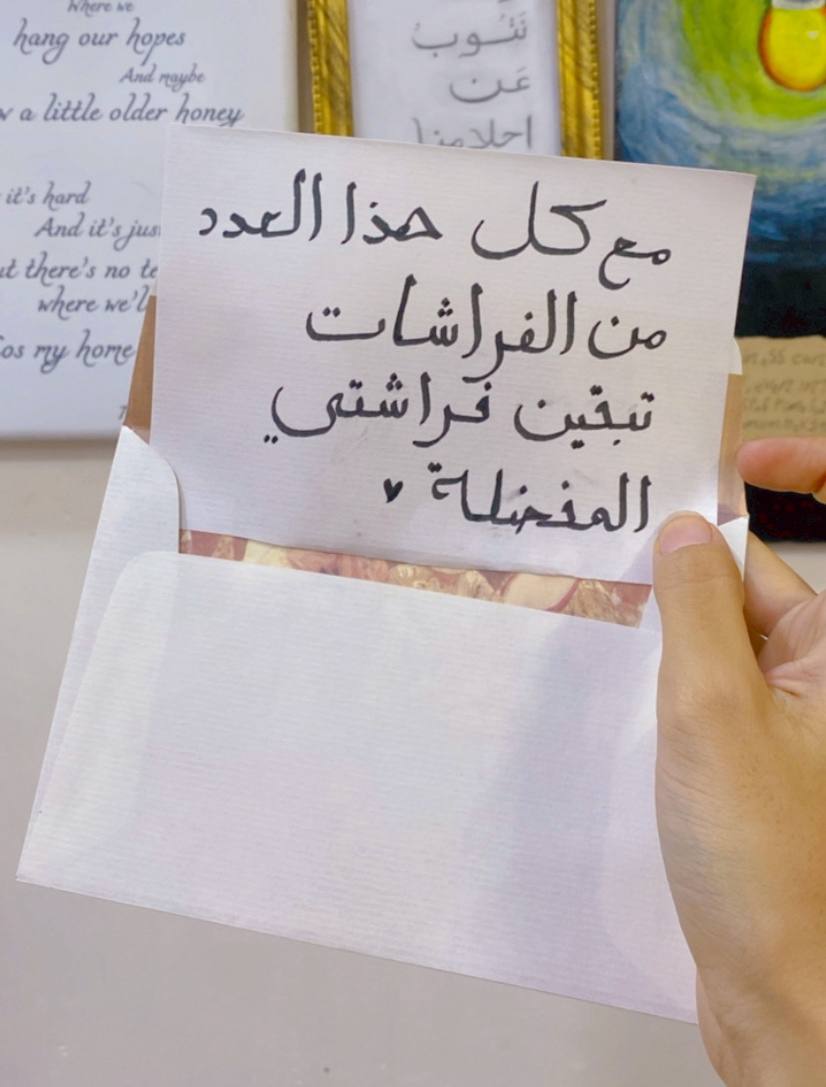 Where we
hang our hopes
And maybe
a little older honey
it's hard
And it's jus
there's no te
where we'l
my home
نتوب
عن
احلامنا
مع كل هذا العدد
من الفراشات
تبقين فراشتي
المفضلة ♥